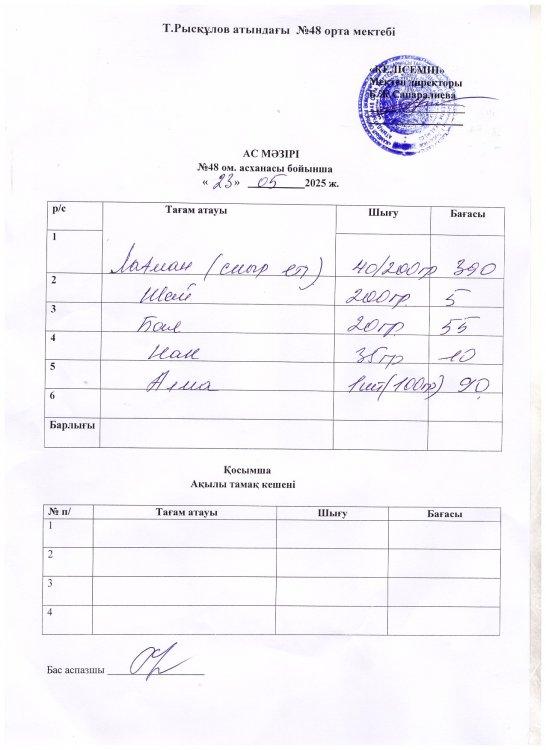 Т.Рысқұлов атындағы №48 орта мектебі
«КЕЛІСЕМІН»
Мектеп директоры
Сапаралиева
АС МӘЗІРІ
№48 ом. асханасы бойынша
« 23 » 05 2025 ж.
р/с Тағам атауы Шығу Бағасы
1 Лагман (сиыр еті) 40/200гр 390
2 Шай 200гр 5
3 Бал 20гр 55
4 Нан 35гр 10
5 Алма 1шт(100гр) 90
6
Барлығы
Қосымша
Ақылы тамақ кешені
№ п/ Тағам атауы Шығу Бағасы
1
2
3
4
Бас аспазшы